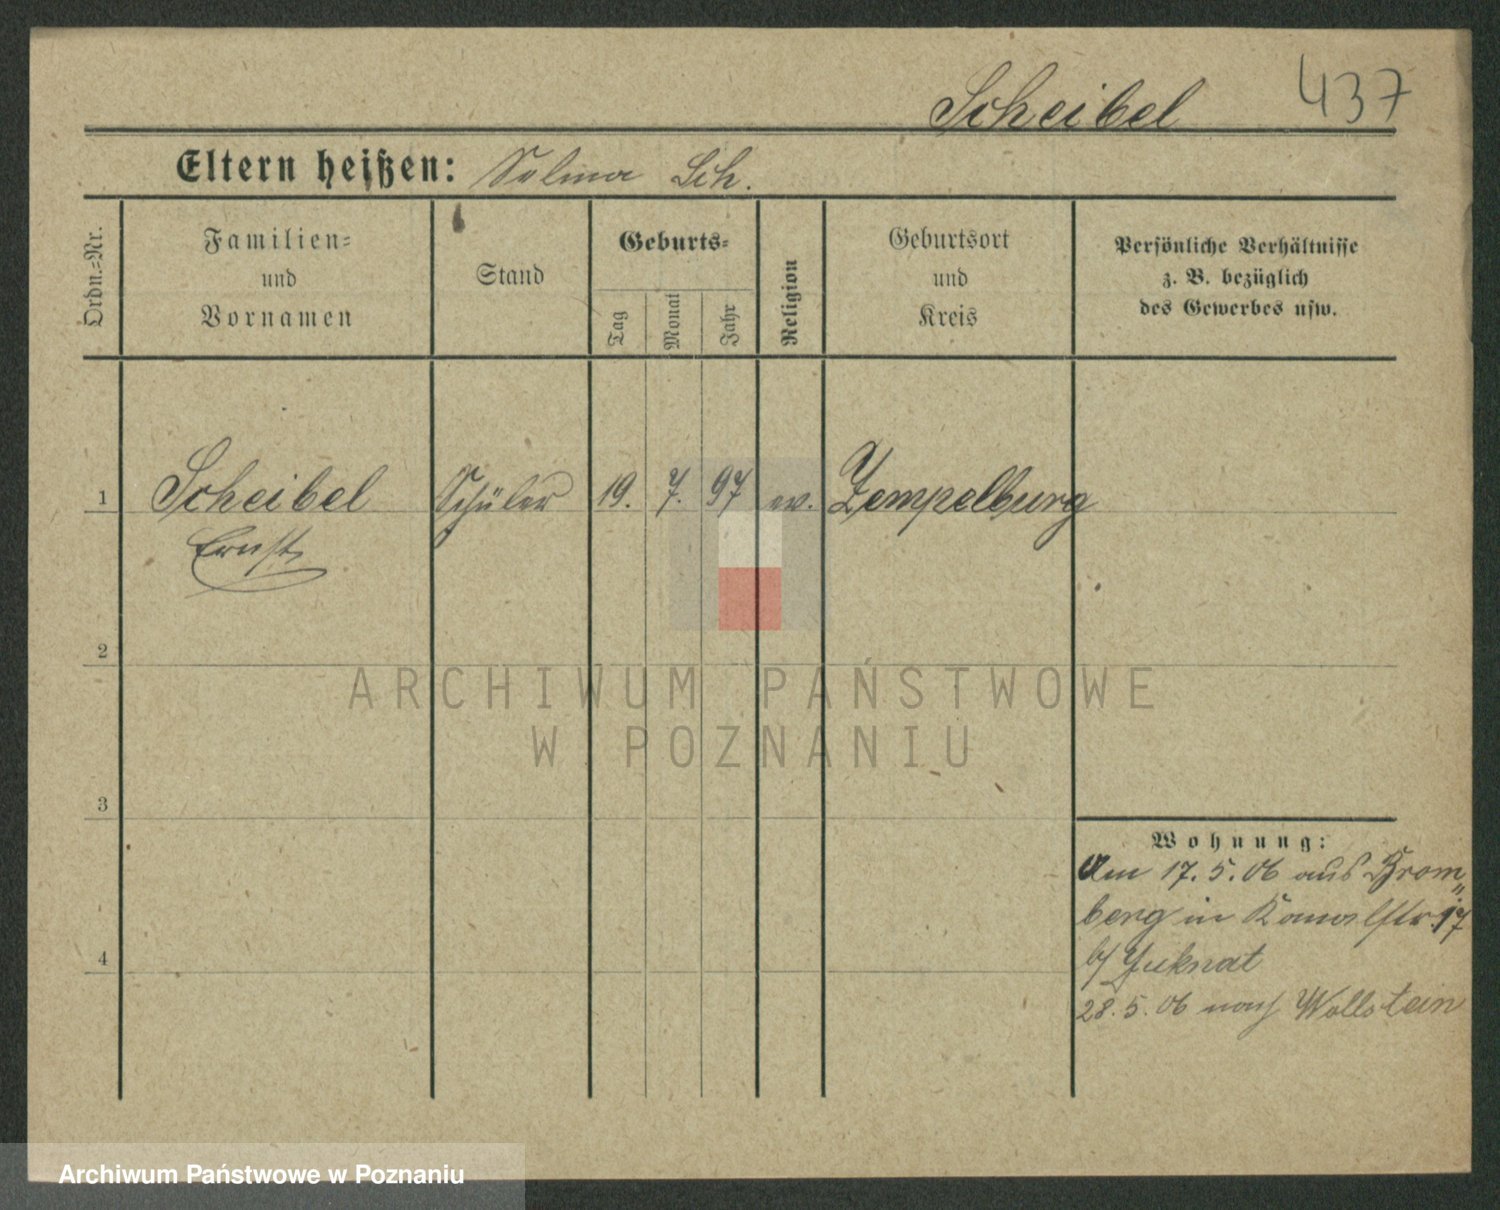 437
Scheibel
Eltern heißen: Selma Sch.
Ordn.=Nr.
Familien=
und
Vornamen
Stand
Geburts=
Tag
Monat
Jahr
Religion
Geburtsort
und
Kreis
Persönliche Verhältnisse
z. B. bezüglich
des Gewerbes usw.
1 Scheibel Schüler 19. 7. 97 ev. Zempelburg
Ernst
2
3
4
Wohnung:
Am 17. 5. 06 aus Brom„
berg in Kanalstr. 17
b/ Juknat
28. 5. 06 nach Wollstein
ARCHIWUM PAŃSTWOWE
W POZNANIU
Archiwum Państwowe w Poznaniu